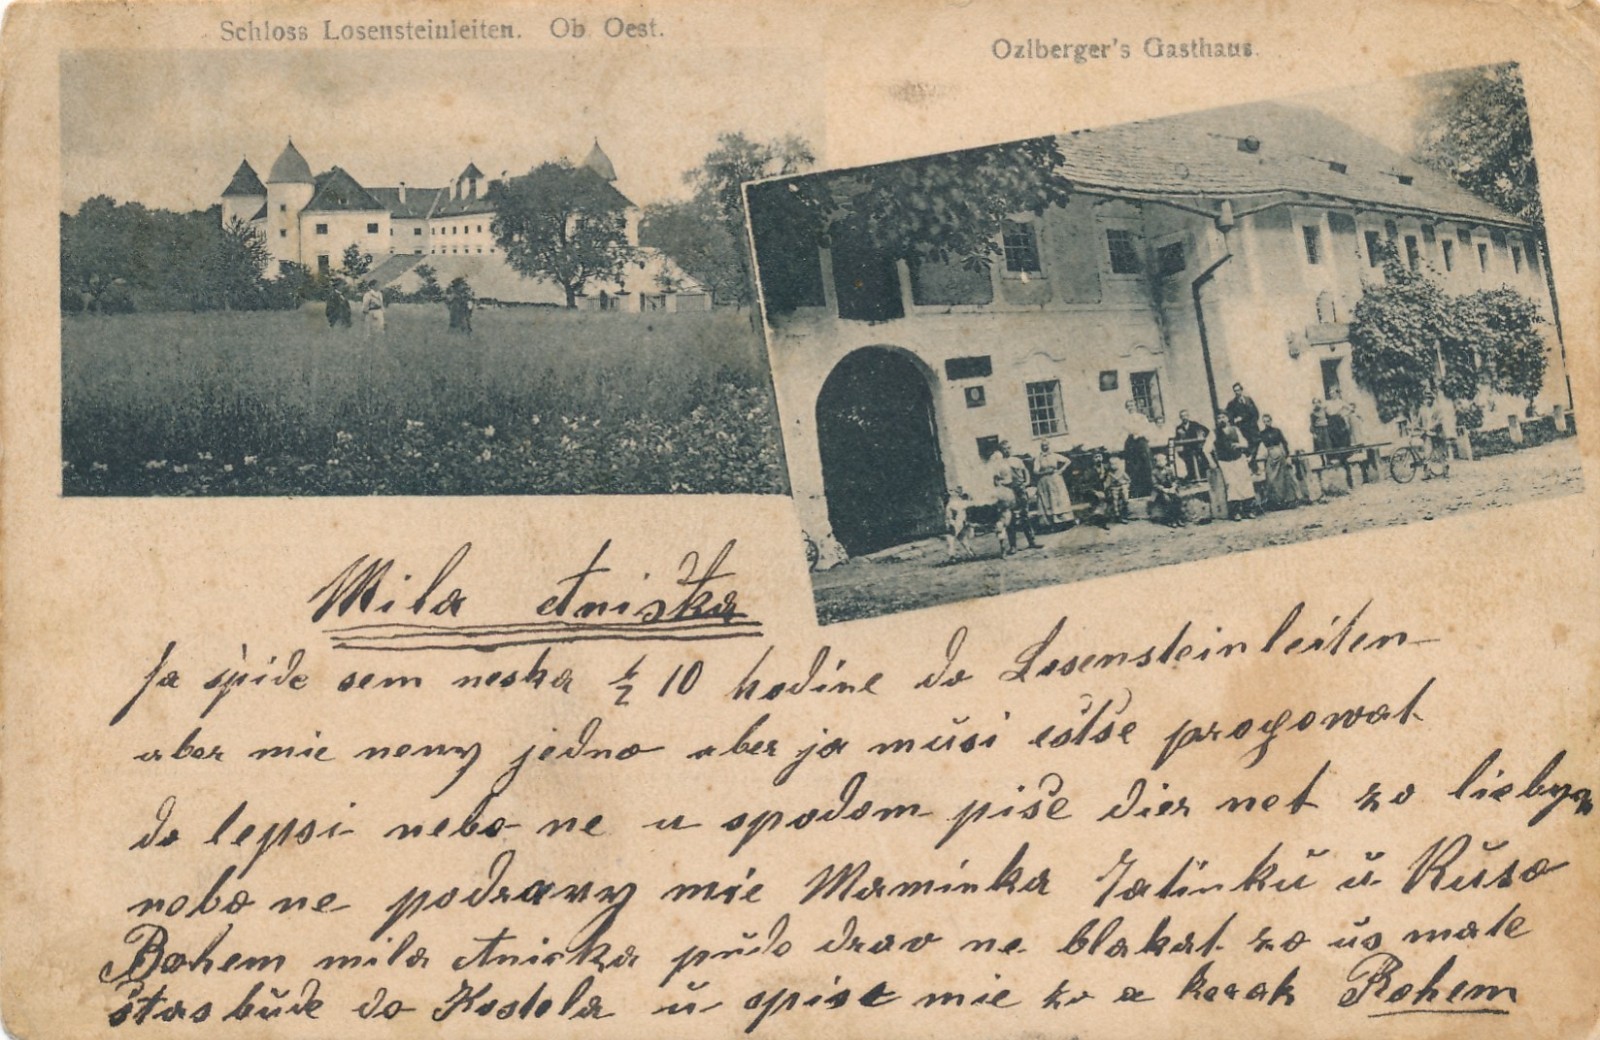 Schloss Losensteinleiten. Ob Oest.
Ozlberger's Gasthaus.
Mila Aniska
Ja spide sem neska 1/2 10 hodine do Losensteinleiten
aber mie neny jedno aber ja müsi estše progowat
do lepsi nebo ne u spodom piše dier net zo
nebo ne podrawy mie Maminka Tatinkü ü Rüso
Bohem mila Aniska püdo draw ne blakat zo üs mate
štas büde do Kostela ü spise mie zo a kerak Bohem